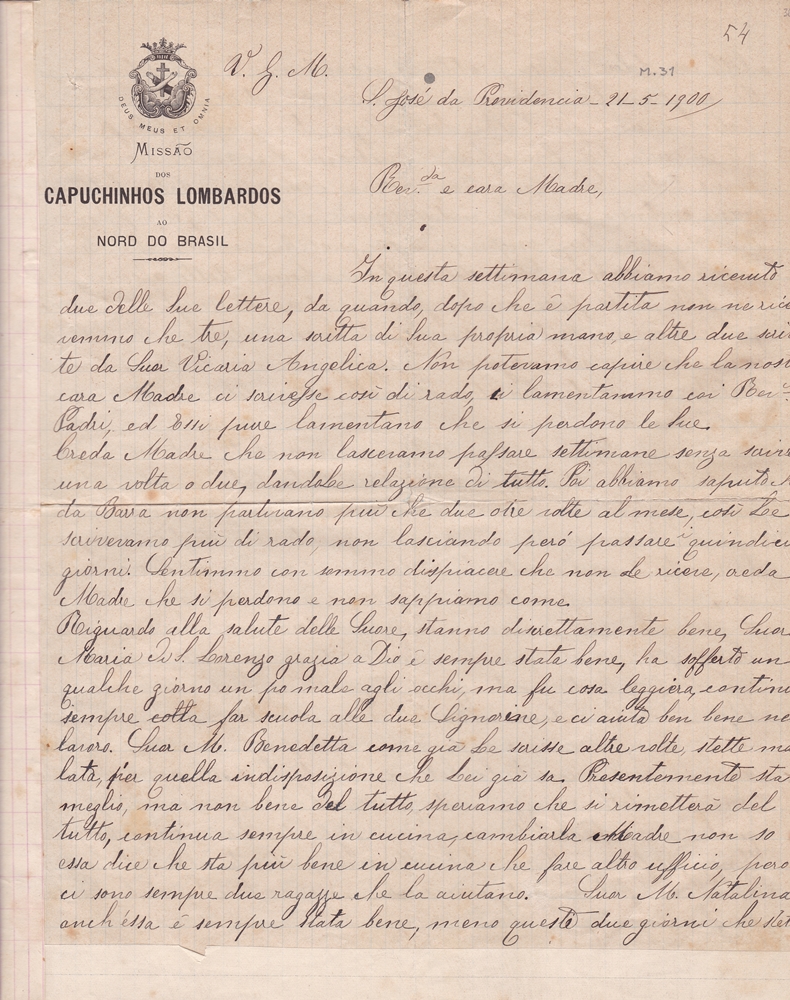 54
M. 31
V. G. M.
DEUS MEUS ET OMNIA
MISSÃO
DOS
CAPUCHINHOS LOMBARDOS
AO
NORD DO BRASIL
S. José da Providencia - 21-5-1900
Rev.da e cara Madre,
In questa settimana abbiamo ricevuto
due delle Sue lettere, da quando, dopo che è partita non ne rice
vemmo che tre, una scritta di Sua propria mano, e altre due scri
te da Suor Vicaria Angelica. Non potevamo capire che la nos
cara Madre ci scrivesse così di rado, ci lamentammo coi Rev.
Padri, ed Essi pure lamentano che si perdono le Sue.
Creda Madre che non lasceramo passare settimane senza scrive
una volta o due, dandole relazione di tutto. Poi abbiamo saputo
da Barra non partivano più che due o tre volte al mese, così Le
scrivevamo più di rado, non lasciando però passare i quindici
giorni. Sentimmo con sommo dispiacere che non Le riceve, creda
Madre che si perdono e non sappiamo come.
Riguardo alla salute delle Suore, stanno discrettamente bene, Suor
Maria di S. Lorenzo grazia a Dio è sempre stata bene, ha sofferto un
qualche giorno un po male agli occhi, ma fu cosa leggiera, continu
sempre colla far scuola alle due Signorine, e ci aiuta ben bene ne
lavoro. Suor M. Benedetta come già Le scrisse altre volte, stette ma
lata, per quella indisposizione che Lei già sa. Presentemente sta
meglio, ma non bene del tutto, speriamo che si rimetterà del
tutto, continua sempre in cucina, cambiarla Madre non so
essa dice che sta più bene in cucina che fare altro ufficio, però
ci sono sempre due ragazze che la aiutano. Suor M. Natalina
anch'essa è sempre stata bene, meno questi due giorni che stet